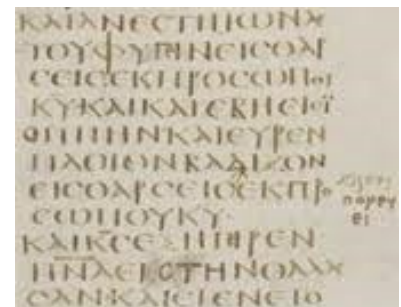 ΚΑΙΑΝΕϹΤΗΙΩΝΑϹ
ΤΟΥΦΥΓΙΝΕΙϹΘΑΡ
ϹΕΙϹΕΚΠΡΟϹΩΠΟΥ
ΚΥΚΑΙΚΑΤΕΒΗΕΙϹΪ
ΟΠΠΗΝΚΑΙΕΥΡΕΝ
ΠΛΟΙΟΝΒΑΔΙΖΟΝ
ΕΙϹΘΑΡϹΕΙϹΕΚΠΡΟ
ϹΩΠΟΥΚΥ·
ΚΑΙΚϹΕΞΗΓΙΡΕΝ
ΠΝΑΕΙϹΤΗΝΘΑΛΑϹ
ϹΑΝ·ΚΑΙΕΓΕΝΕΤΟ